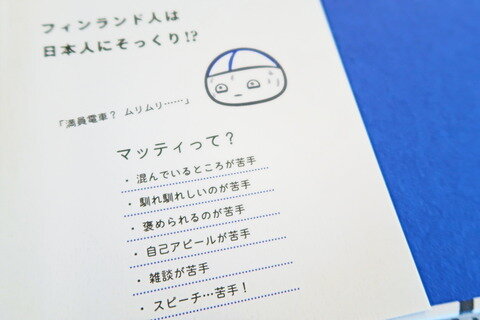 フィンランド人は
日本人にそっくり!?
「満員電車？ ムリムリ……」
マッティって？
・混んでいるところが苦手
・馴れ馴れしいのが苦手
・褒められるのが苦手
・自己アピールが苦手
・雑談が苦手
・スピーチ…苦手！